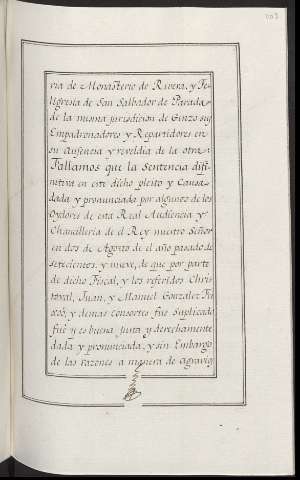 ria de Monasterio de Rivera, y Fe-
ligresia de San Salbador de Parada
de la misma jurisdicion de Ginzo sus
Empadronadores y Repartidores en
su Ausencia y reveldia de la otra:
Fallamos que la Sentencia difi-
nitiva en este dicho pleito y Causa
dada y pronunciada por algunos de los
Oydores de esta Real Audiencia y
Chancilleria de el Rey nuestro Señor
en dos de Agosto de el año pasado de
setecientos, y nueve, de que por parte
de dicho Fiscal, y los referidos Chris-
toval, Juan, y Manuel Gonzalez
y demas Consortes fue Suplicado
fue y es buena justa y derechamente
dada y pronunciada, y sin Embargo
de las razones a manera de agravio